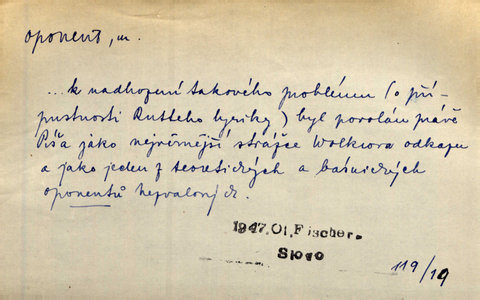 oponent, m.
...k nadhození takového problému (o pří-
pustnosti Rutteho lyriky) byl povolán právě
Píša jako nejvěrnější strážce Wolkrova odkazu
a jako jeden z teoretických a básnických
oponentů nezvalových.
1947.Ot.Fischer-
Slovo
119/19